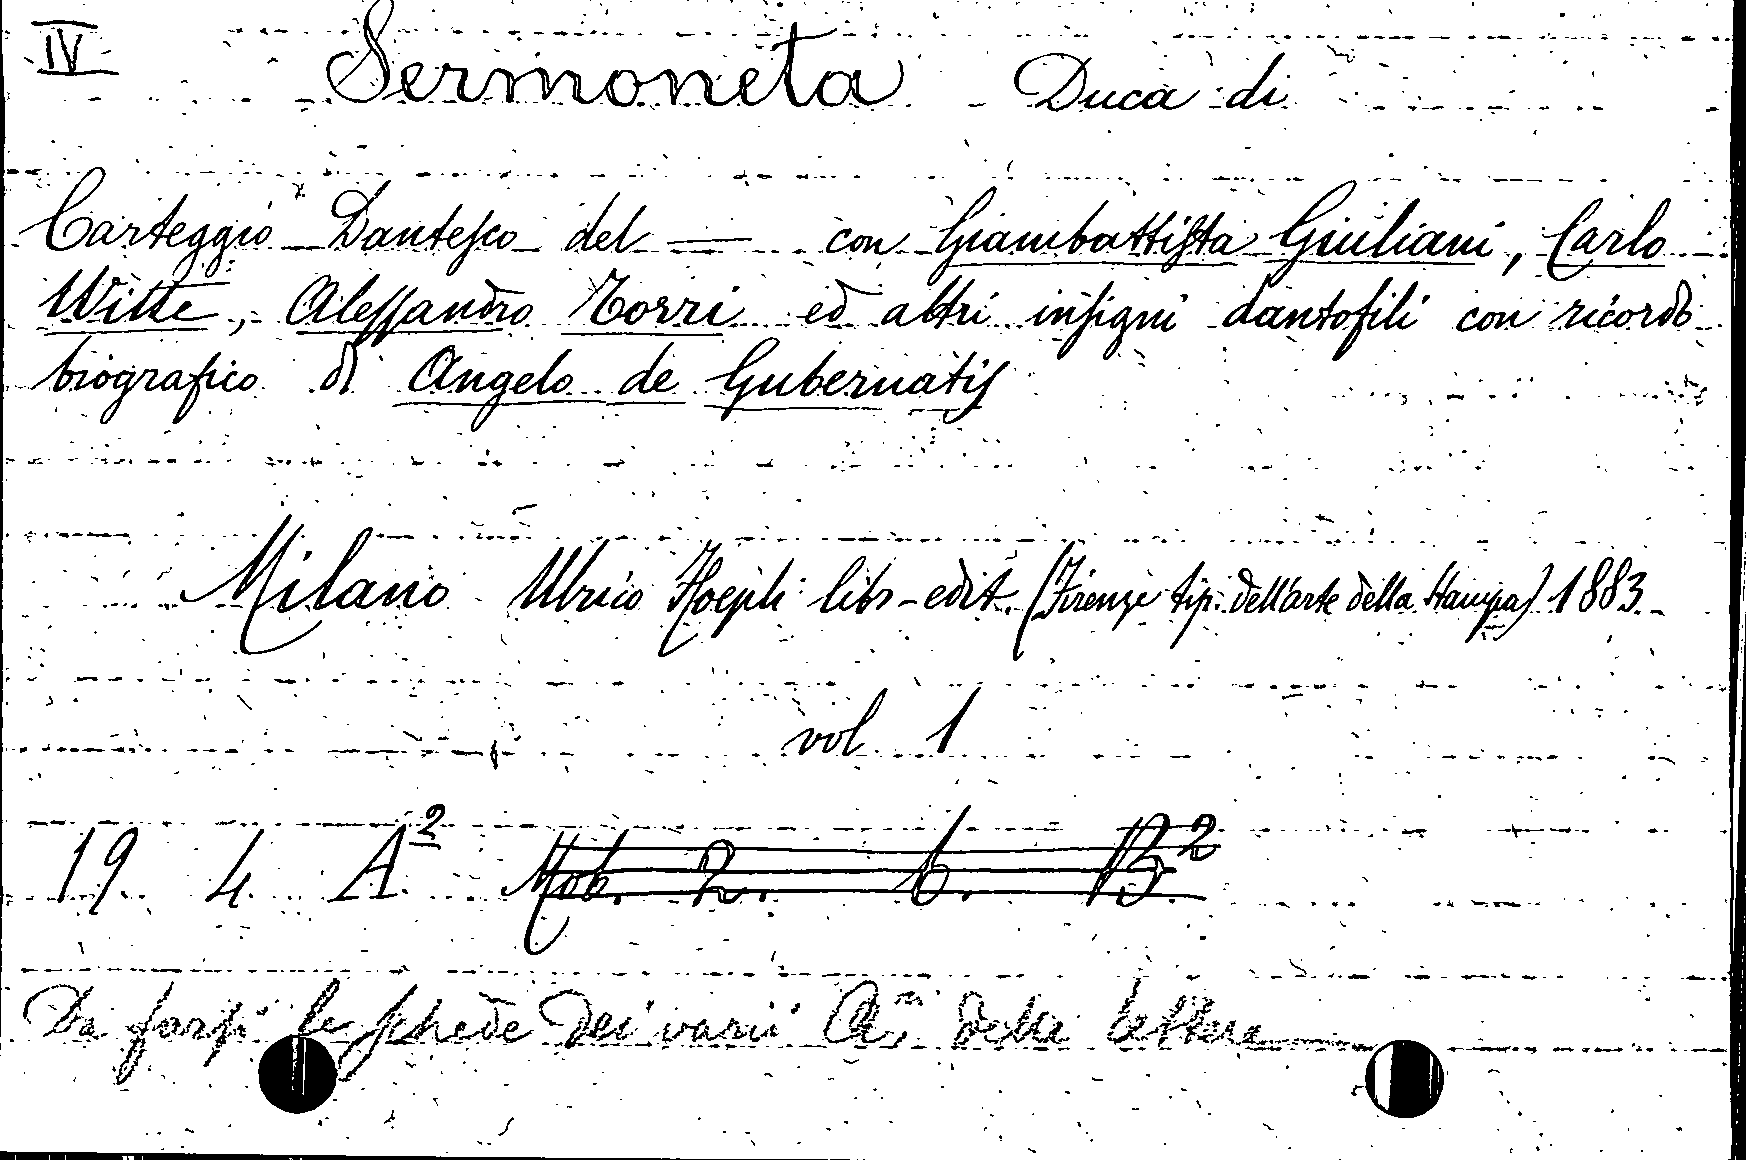 IV Sermoneta Duca di
Carteggio Dantesco del — con Giambattista Giuliani, Carlo
Witte, Alessandro Torri ed altri insigni dantofili con ricordo
biografico di Angelo de Gubernatis
Milano Ulrico Hoepli libr-edit. (Firenze tip. dell'arte della Stampa) 1883.
vol. 1
19 4 A² Mob. 2. 6. B²
Da farsi le schede dei varii delle lettere